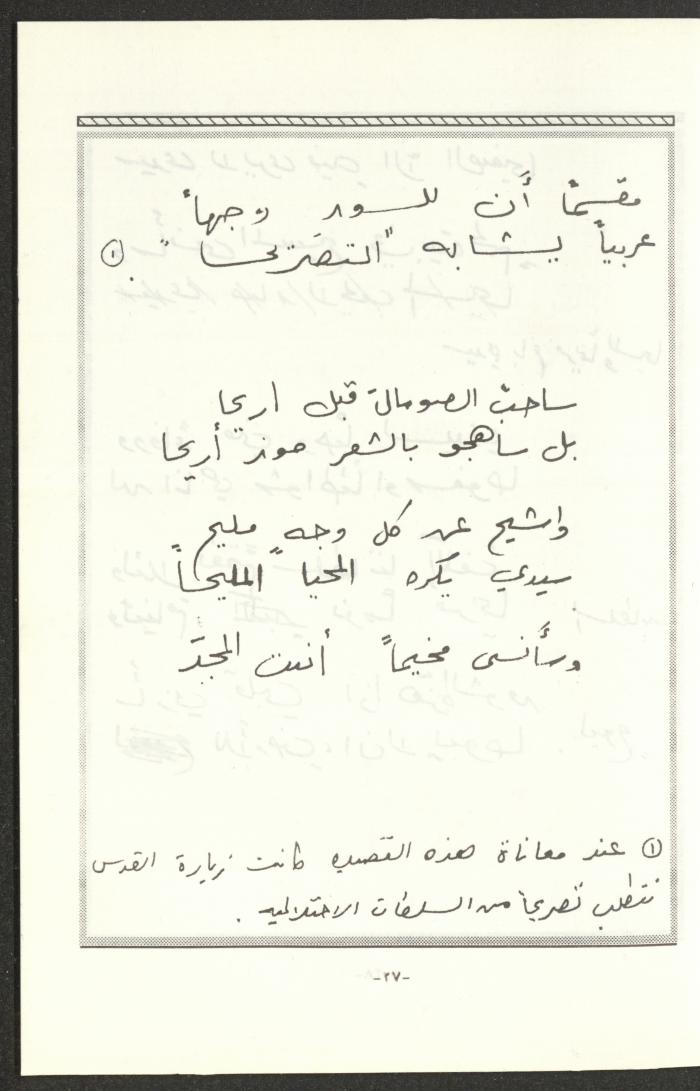 مقسماً أَن للسور وجهاً
عربياً يشابه "التصَريحا" . ①
ساحبّ الصومالَ قبل اريحا
بل ساهجو بالشعر موز أريحا
واشيح عن كل وجه مليح
سيدي يكره المحيا "المليحا"
وسأَنسى مخيماً أنبت المجدَ
① عند معاناة هذه القصيده كانت زيارة القدس
تتطلب تصريحاً من السلطات الاحتلاليه .
-٢٧-